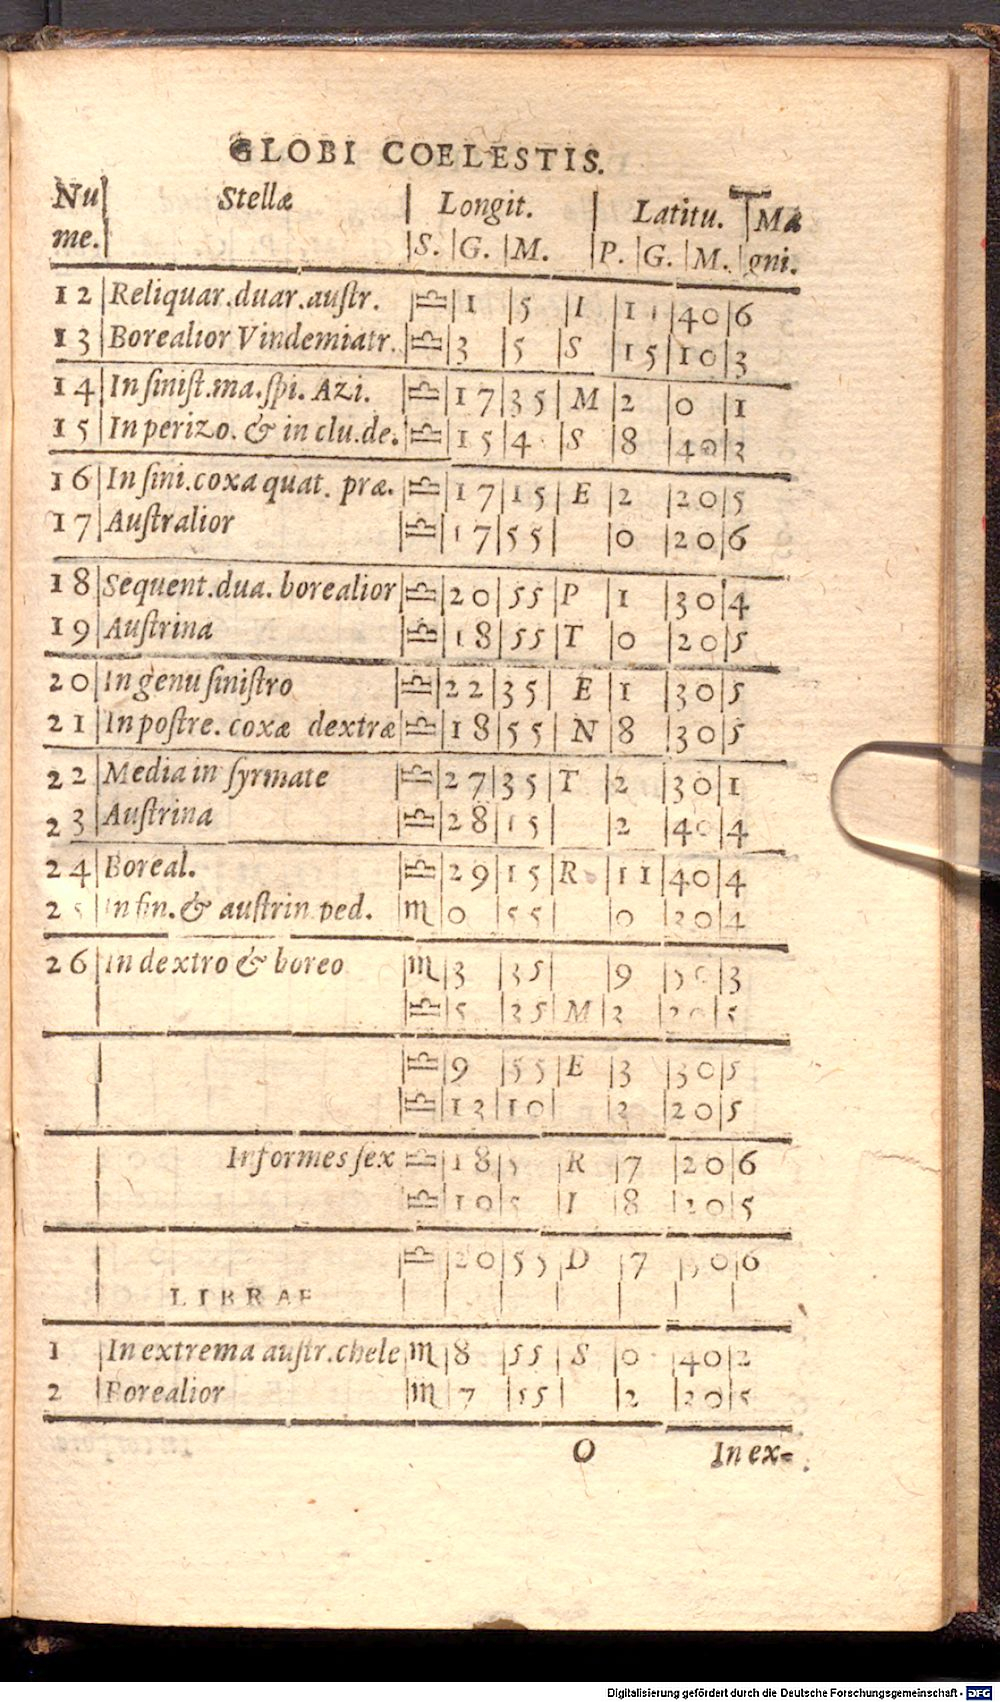 GLOBI COELESTIS.
Nu | Stellæ | Longit. | Latitu. | Ma
me. | S. | G. | M. | P. | G. | M. | gni.
12 | Reliquar.duar.auſtr. | ♎ | 1 | 5 | I | 1 | 40 | 6
13 | Borealior Vindemiatr. | ♎ | 3 | 5 | S | 15 | 10 | 3
14 | In ſiniſt.ma.ſpi. Azi. | ♎ | 17 | 35 | M | 2 | 0 | 1
15 | In perizo. & in clu.de. | ♎ | 15 | 4 | S | 8 | 40 | 3
16 | In ſini.coxa quat. præ. | ♎ | 17 | 15 | E | 2 | 20 | 5
17 | Auſtralior | ♎ | 17 | 55 | | 0 | 20 | 6
18 | Sequent.dua. borealior | ♎ | 20 | 55 | P | 1 | 30 | 4
19 | Auſtrina | ♎ | 18 | 55 | T | 0 | 20 | 5
20 | In genu ſiniſtro | ♎ | 22 | 35 | E | 1 | 30 | 5
21 | In poſtre. coxæ dextræ | ♎ | 18 | 55 | N | 8 | 30 | 5
22 | Media in ſyrmate | ♎ | 27 | 35 | T | 2 | 30 | 1
23 | Auſtrina | ♎ | 28 | 15 | | 2 | 40 | 4
24 | Boreal. | ♎ | 29 | 15 | R | 11 | 40 | 4
25 | In ſin. & auſtrin ped. | ♏ | 0 | 55 | | 0 | 30 | 4
26 | In dextro & boreo | ♏ | 3 | 35 | | 9 | 50 | 3
♎ | 5 | 35 | M | 3 | 20 | 5
♎ | 9 | 55 | E | 3 | 30 | 5
♎ | 13 | 10 | | 3 | 20 | 5
Informes ſex | ♎ | 18 | 5 | R | 7 | 20 | 6
♎ | 10 | 5 | I | 8 | 20 | 5
♎ | 20 | 55 | D | 7 | 50 | 6
LIBRAE
1 | In extrema auſtr.chele | ♏ | 8 | 55 | S | 0 | 40 | 2
2 | Borealior | ♏ | 7 | 55 | | 2 | 30 | 5
O In ex-
Digitalisierung gefördert durch die Deutsche Forschungsgemeinschaft - DFG